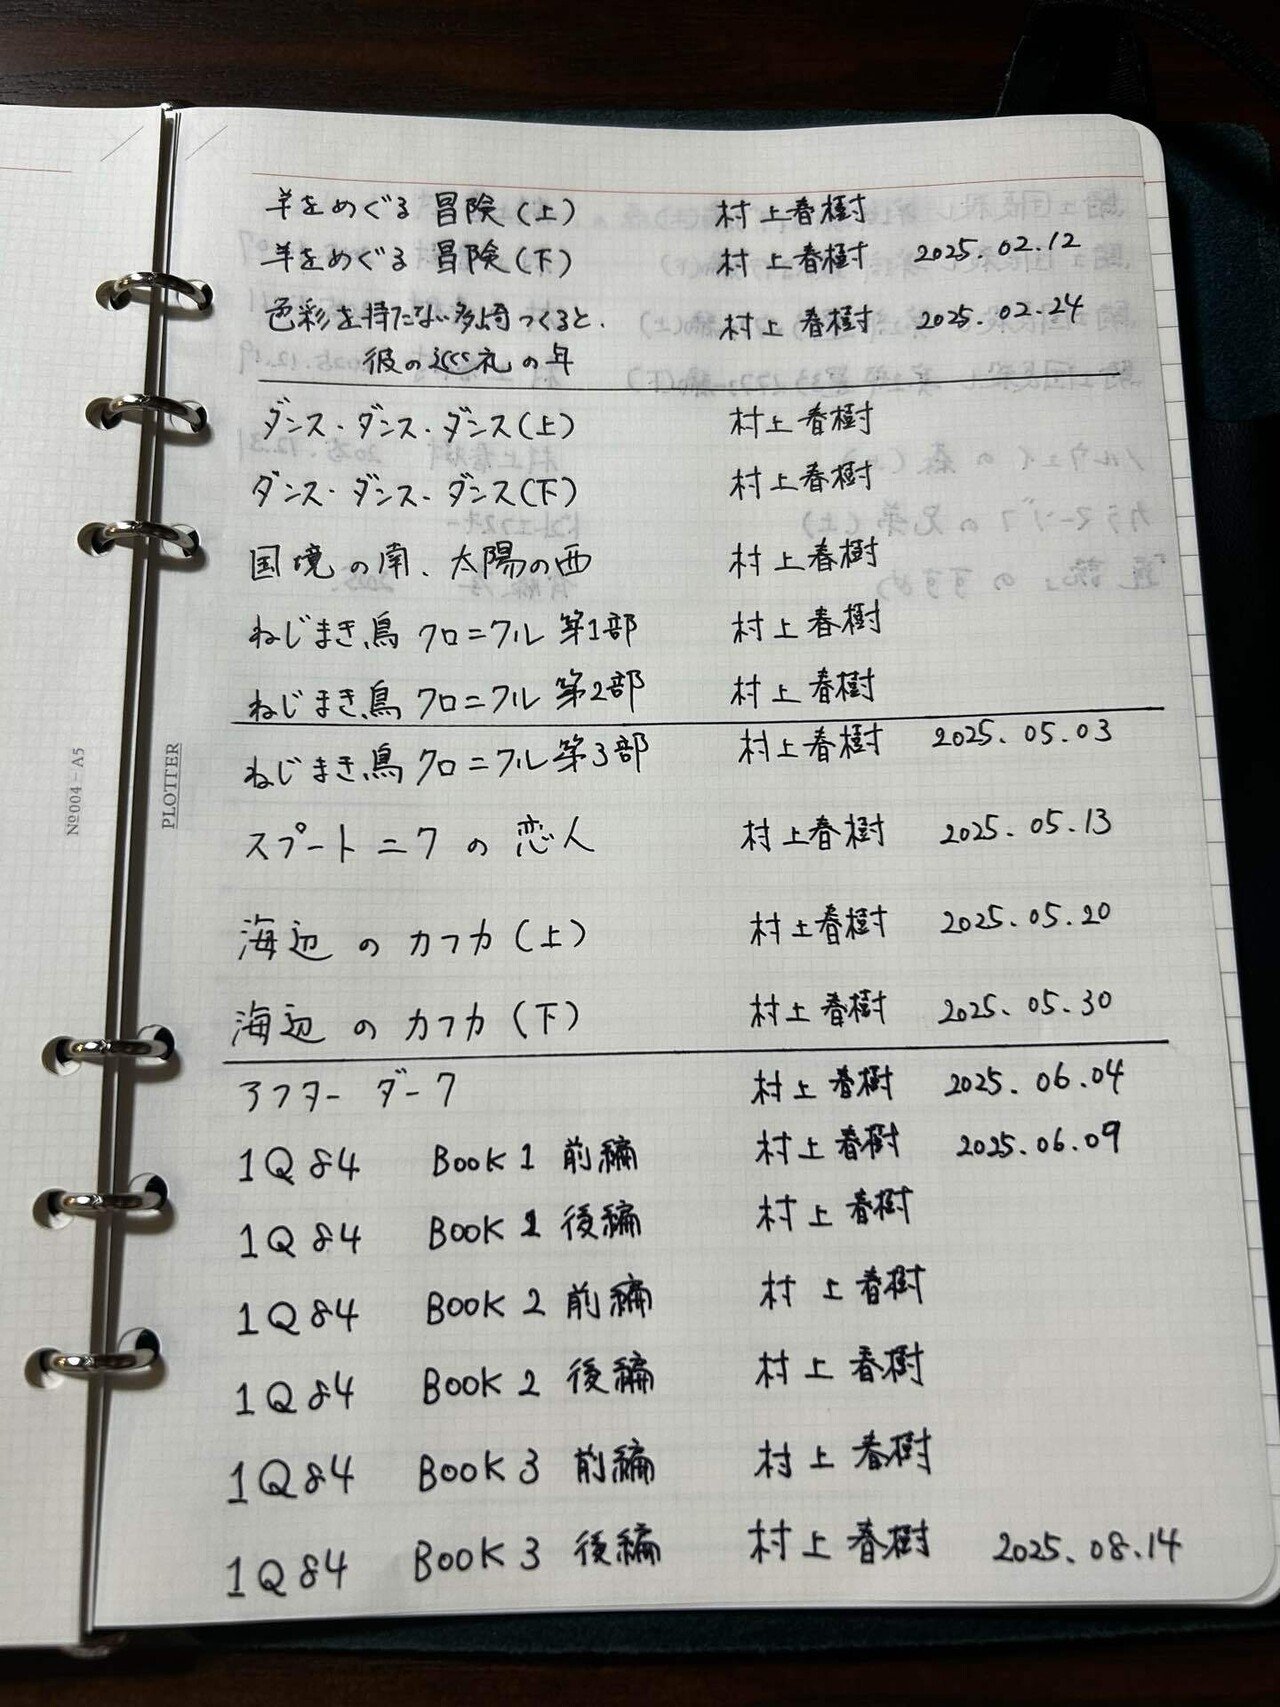 羊をめぐる冒険(上) 村上春樹
羊をめぐる冒険(下) 村上春樹 2025.02.12
色彩を持たない多崎つくると、 村上春樹 2025.02.24
彼の巡礼の年
ダンス・ダンス・ダンス(上) 村上春樹
ダンス・ダンス・ダンス(下) 村上春樹
国境の南、太陽の西 村上春樹
ねじまき鳥クロニクル 第1部 村上春樹
ねじまき鳥クロニクル 第2部 村上春樹
ねじまき鳥クロニクル 第3部 村上春樹 2025.05.03
スプートニクの恋人 村上春樹 2025.05.13
海辺のカフカ(上) 村上春樹 2025.05.20
海辺のカフカ(下) 村上春樹 2025.05.30
アフターダーク 村上春樹 2025.06.04
1Q84 BOOK1 前編 村上春樹 2025.06.09
1Q84 BOOK1 後編 村上春樹
1Q84 BOOK2 前編 村上春樹
1Q84 BOOK2 後編 村上春樹
1Q84 BOOK3 前編 村上春樹
1Q84 BOOK3 後編 村上春樹 2025.08.14
№004-A5
PLOTTER